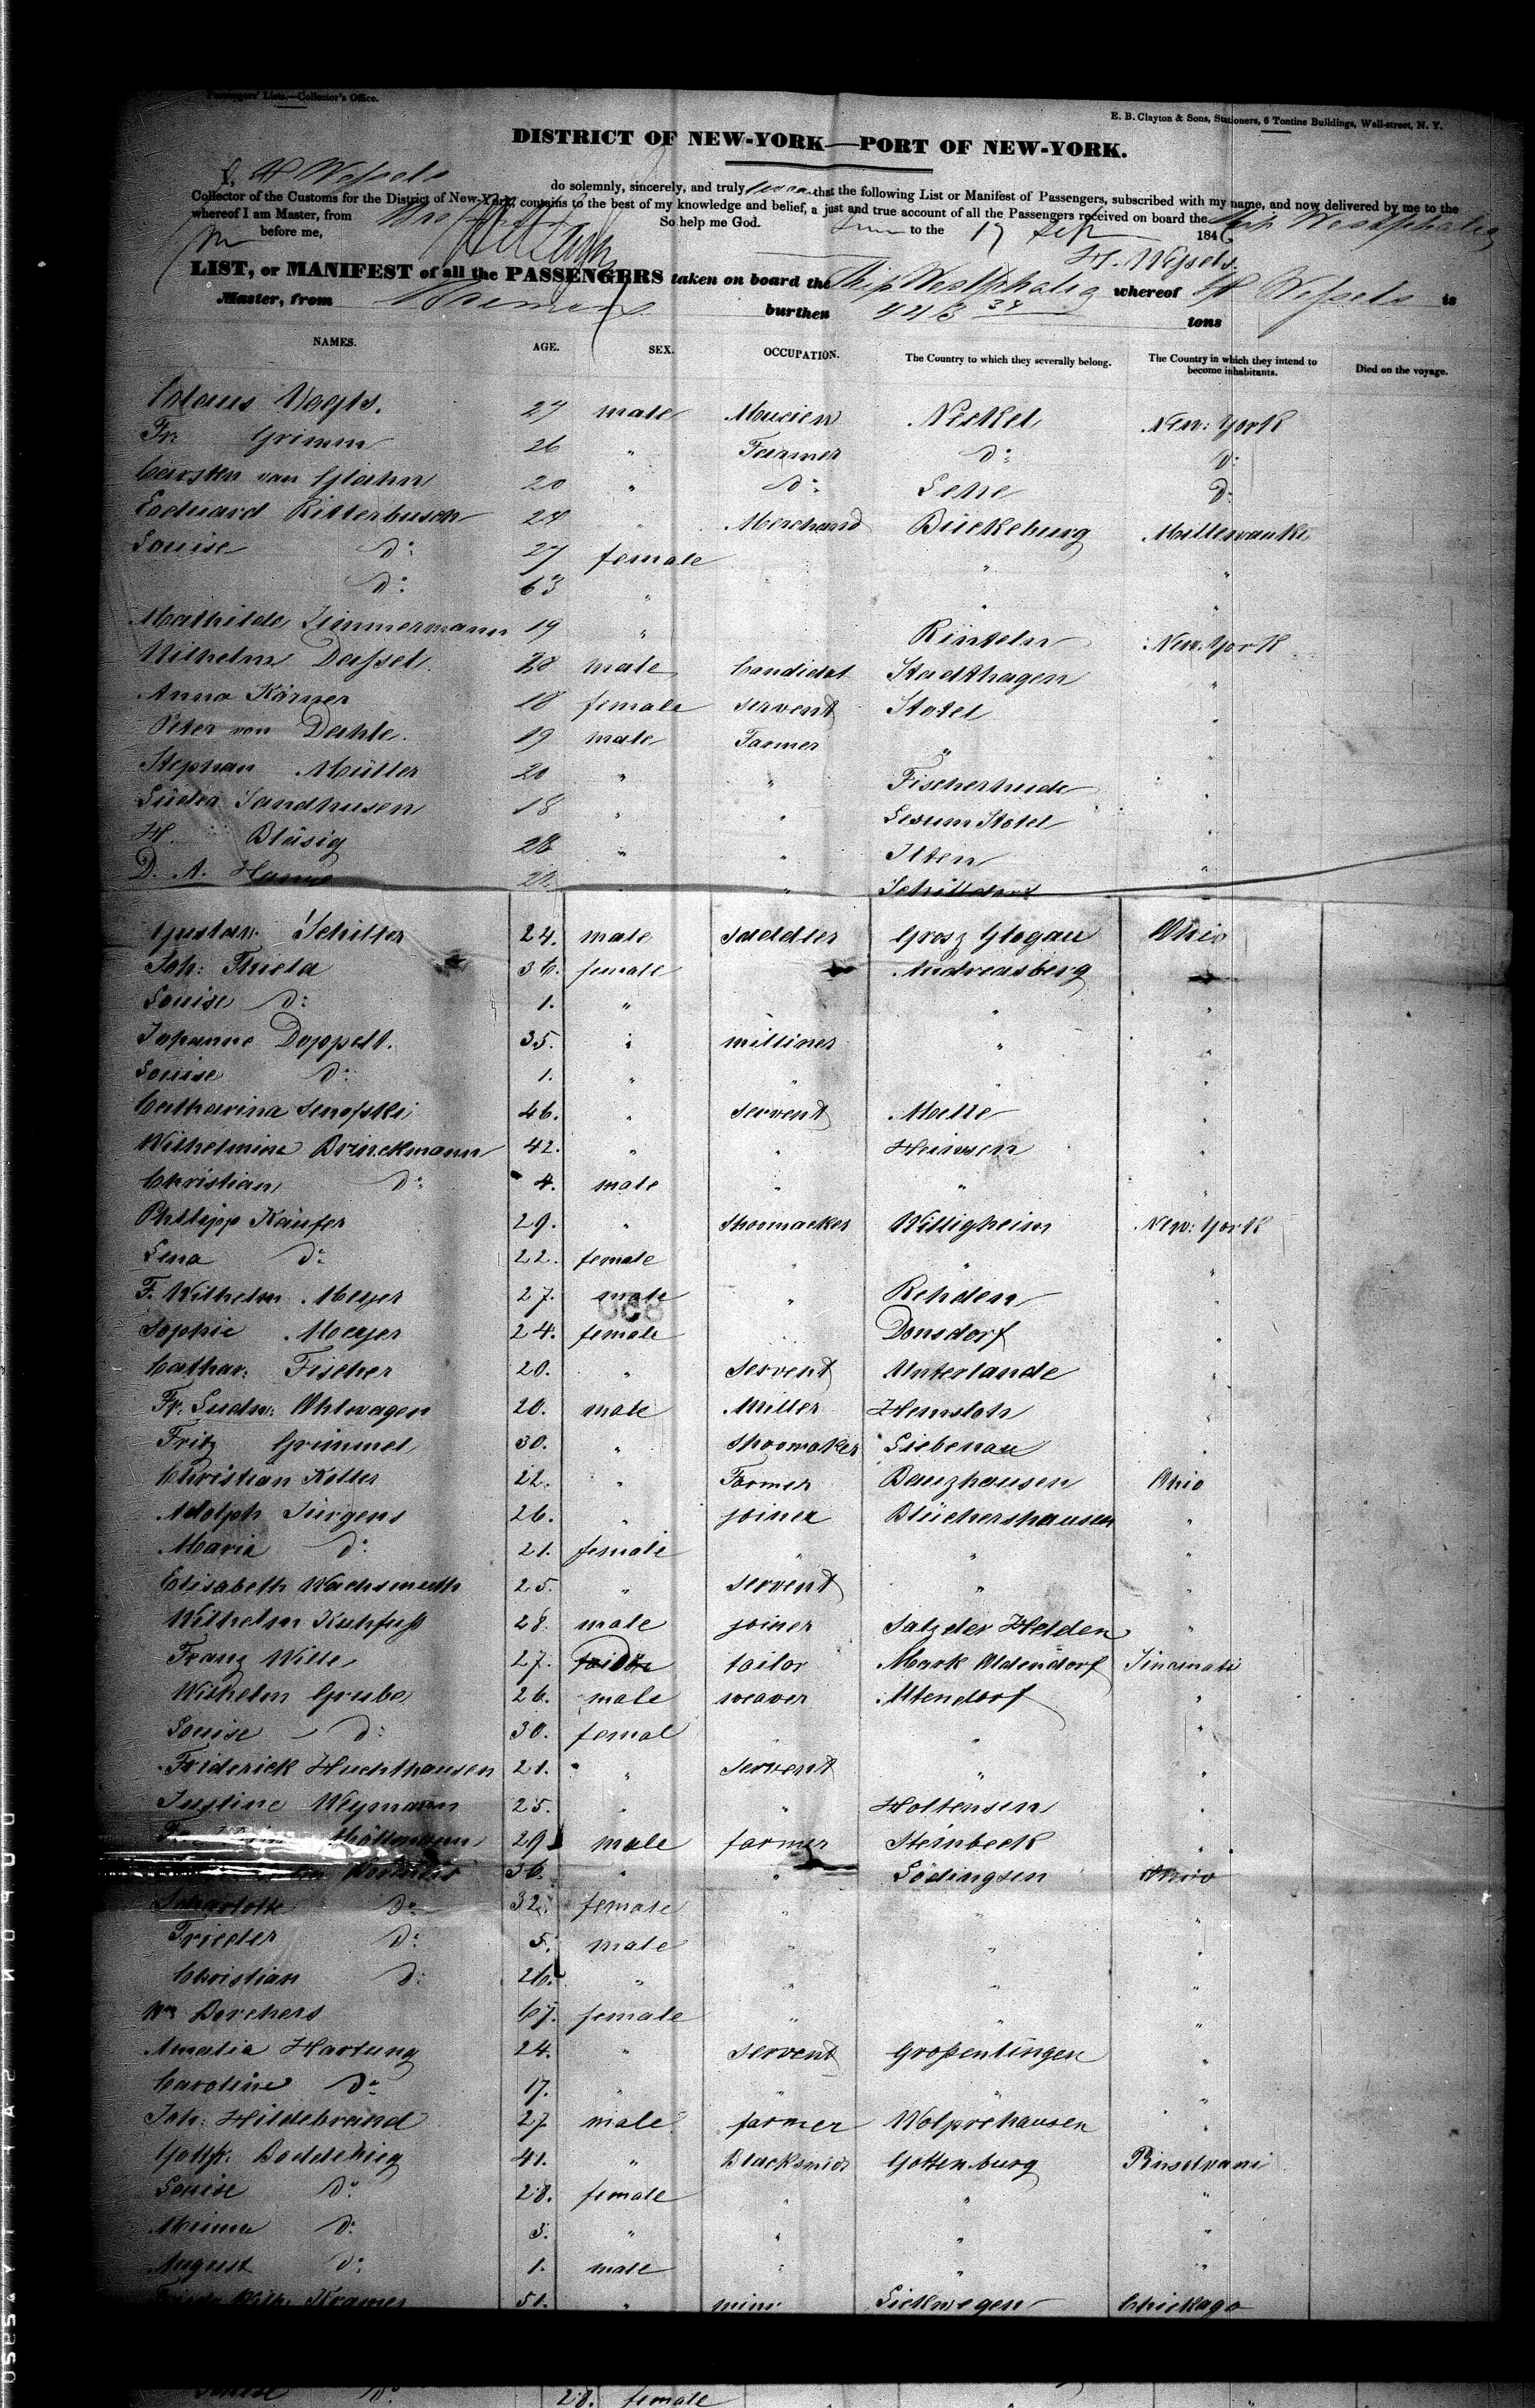 Passengers' Lists.—Collector's Office.
E. B. Clayton & Sons, Stationers, 6 Tontine Buildings, Wall-street, N. Y.
DISTRICT OF NEW-YORK—PORT OF NEW-YORK.
I, H Wessels do solemnly, sincerely, and truly swear that the following List or Manifest of Passengers, subscribed with my name, and now delivered by me to the
Collector of the Customs for the District of New-York, contains to the best of my knowledge and belief, a just and true account of all the Passengers received on board the Ship Westphalia
whereof I am Master, from So help me God.
before me, to the 17 Sep 1846
H. Wessels.
LIST, or MANIFEST of all the PASSENGERS taken on board the Ship Westphalia whereof H Wessels is
Master, from Bremen burthen 413 34 tons
NAMES. AGE. SEX. OCCUPATION. The Country to which they severally belong. The Country in which they intend to become inhabitants. Died on the voyage.
Claus Vagts. 27 male Muscien Neskel New: York
Fr Grimm 26 " Farmer do: do:
Carsten van Glahn 20 " do: Sehe do:
Eoduard Ritterbusch 24 " Merchand Bückeburg Millewauke
Louise do: 27 female " "
do: 63 " " "
Mathilde Zimmermann 19 " Rinteln New. York
Wilhelm Dassel 28 male Candidat Stadthagen "
Anna Körner 18 female servent Stotel "
Peter von Dahle. 19 male Farmer " "
Stephan Müller 20 " " Fischerhude "
Lüder Sandhusen 18 " " Lesum Stotel "
H. Bläsig 28 " " Ilten "
D. A. Hanne " Schiffdorf
Gustav. Schiller 24. male saddler Grosz Glogau Ohio
Joh: Thiela 36. female Andreasberg
Louise do: 1. " " "
Johanne Doppelt. 35. " milliner " "
Louise do: 1. " " " "
Catharina Senofski 46. " servent Melle "
Wilhelmine Brinckmann 42. " " Heinsen "
Christian do: 4. male " " "
Philipp Käufer 29. " shoomacker Willigheim New: York
Lena do: 22. female " " "
F. Wilhelm Meyer 27. male " Rehden "
Sophie Meyer 24. female Donsdorf "
Cathar: Fischer 20. " servent Unterlande "
Fr. Ludw: Ohlwagen 20. male Miller Hemsloh "
Fritz Grimmel 30. " shoomaker Liebenau "
Christian Kotter 22. " Farmer Banzhausen Ohio
Adolph Jürgens 26. " joiner Blüchershausen "
Maria do: 21. female " " "
Elisabeth Wachsmuth 25. " servent " "
Wilhelm Kuhfuß 28. male joiner Salzder Helden "
Franz Wille 27. tailor Mark Oldendorf Sincinati
Wilhelm Grube 26. male weaver Altendorf "
Louise do: 30. femal " "
Friderick Huchthausen 21. " servent " "
Justine Weymann 25. " " Holtensen "
29 male farmer Steinbeck "
36. " " Södingsen Ohio
Scharlotte do: 32. female " " "
Frieder do: 5. male " " "
Christian do: 26. " " " "
Wm Borchers 67. female " " "
Amalia Hartung 24. " servent Großenlingen "
Caroline do: 17. " " " "
Joh: Hildebrand 27 male farmer Wolprehausen "
Gottfr. Boddeking 41. " Blacksmid Gottenburg Pinselvani
Louise do: 28. female " " "
Minna do: 3. " " " "
August do: 1. male " " "
Kramer 51. " Lickwegen Chickago
Louise do: 28. female